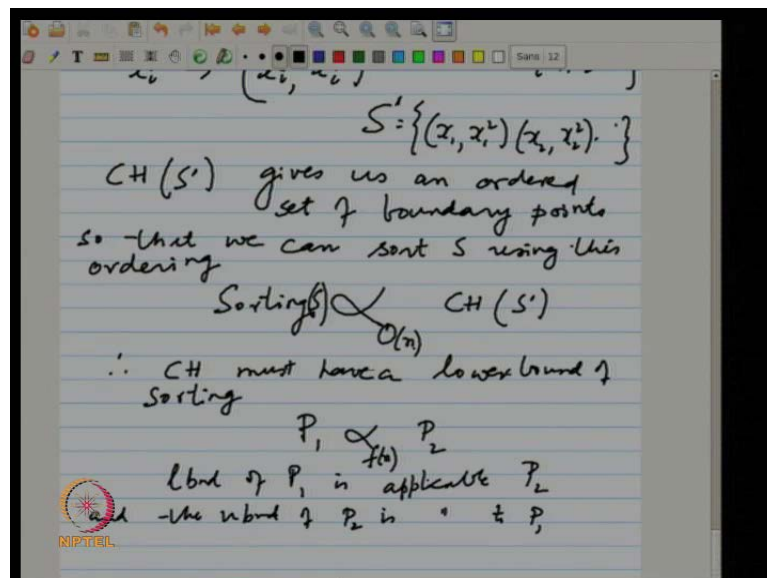 Sans 12
x_i → (x_i, x_i
S' = {(x_1, x_1^2) (x_2, x_2^2). . }
CH (S') gives us an ordered
set of boundary points
so that we can sort S using this
ordering
Sorting(S) ∝_{O(n)} CH (S')
∴ CH must have a lower bound of
Sorting
P_1 ∝_{f(n)} P_2
lbnd of P_1 is applicable P_2
and the ubnd of P_2 is " to P_1
NPTEL